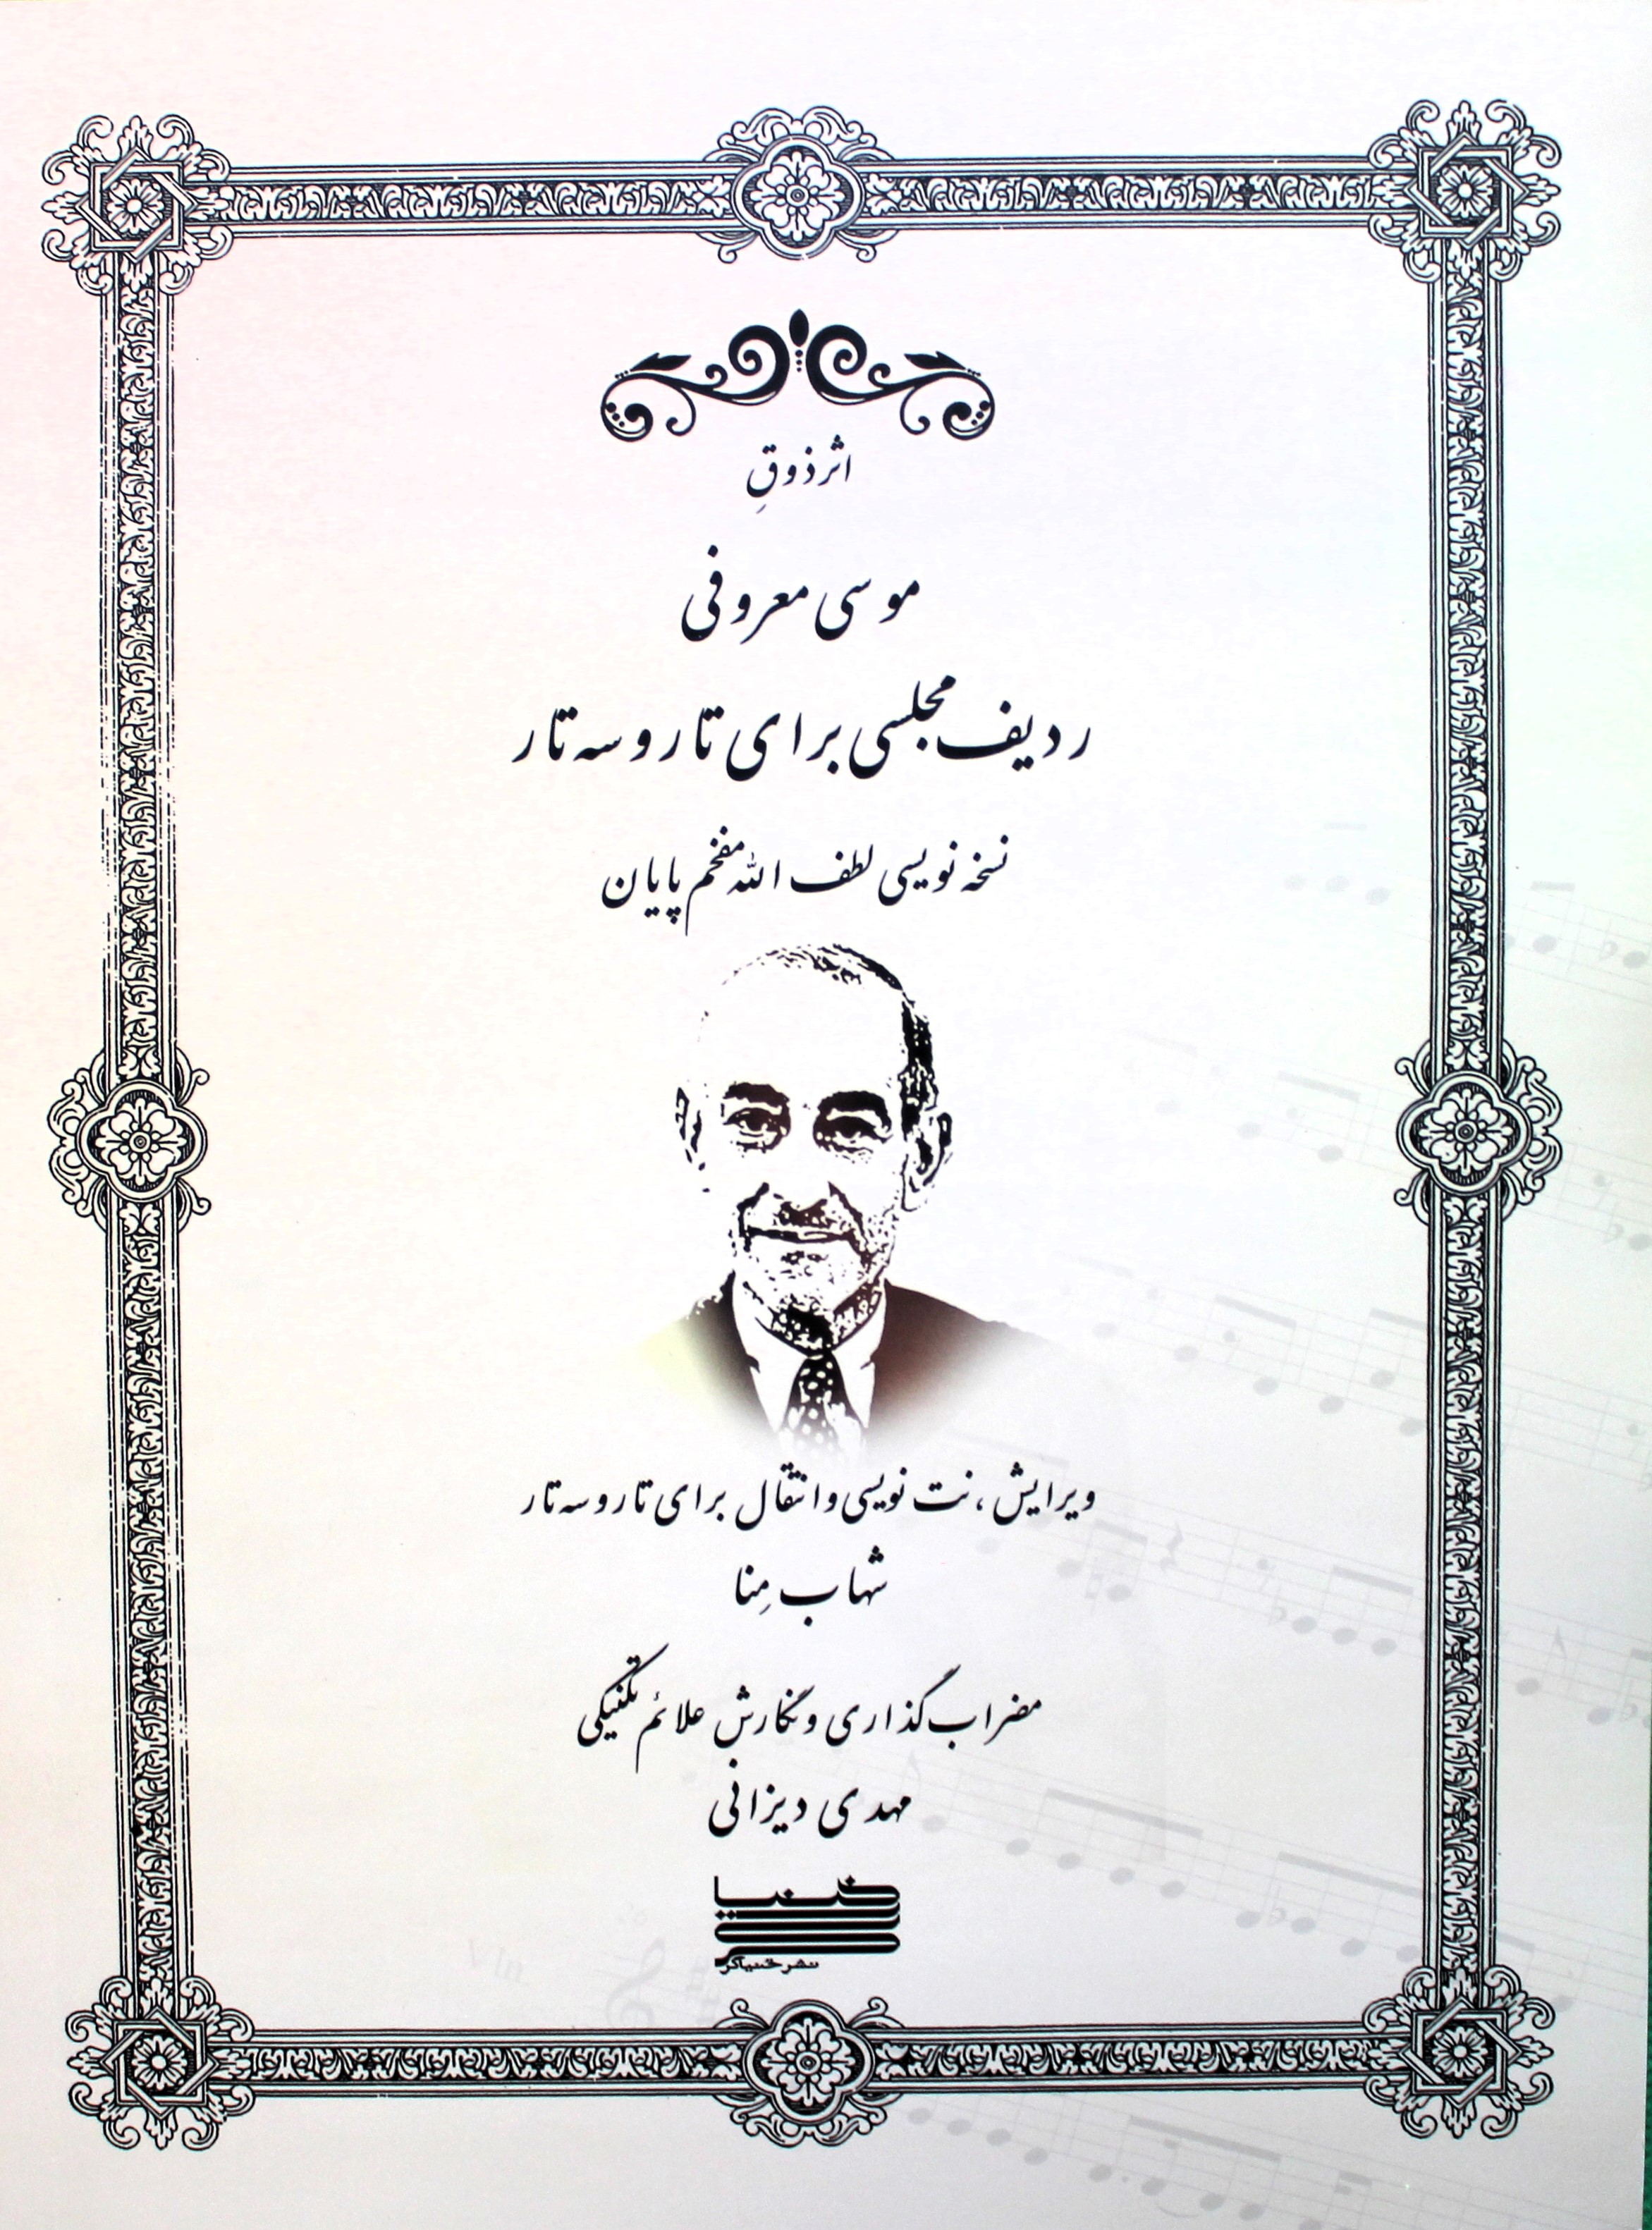 اثر ذوقِ
موسی معروفی
ردیف مجلسی برای تار و سه تار
نسخه نویسی لطف الله مفخم پایان
ویرایش، نت نویسی و انتقال برای تار و سه تار
شهاب مِنا
مضراب گذاری و نگارش علائم تکنیکی
مهدی دیزانی
خنیاگر
نشر خنیاگر
Vln.